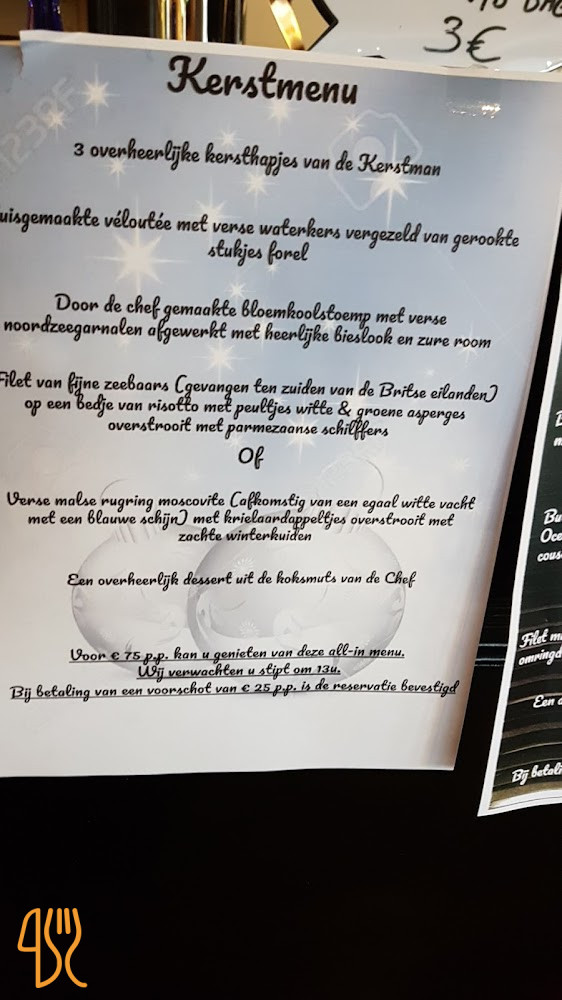 3€
Kerstmenu
3 overheerlijke kersthapjes van de Kerstman
uisgemaakte véloutée met verse waterkers vergezeld van gerookte
stukjes forel
Door de chef gemaakte bloemkoolstoemp met verse
noordzeegarnalen afgewerkt met heerlijke bieslook en zure room
Filet van fijne zeebaars (gevangen ten zuiden van de Britse eilanden)
op een bedje van risotto met peultjes witte & groene asperges
overstrooit met parmezaanse schilffers
Of
Verse malse rugring moscovite (afkomstig van een egaal witte vacht
met een blauwe schijn) met krielaardappeltjes overstrooit met
zachte winterkuiden
Een overheerlijk dessert uit de koksmuts van de Chef
Voor € 75 p.p. kan u genieten van deze all-in menu.
Wij verwachten u stipt om 13u.
Bij betaling van een voorschot van € 25 p.p. is de reservatie bevestigd
Bu
Oce
cous
Filet m
omringd
Een
Bij betali